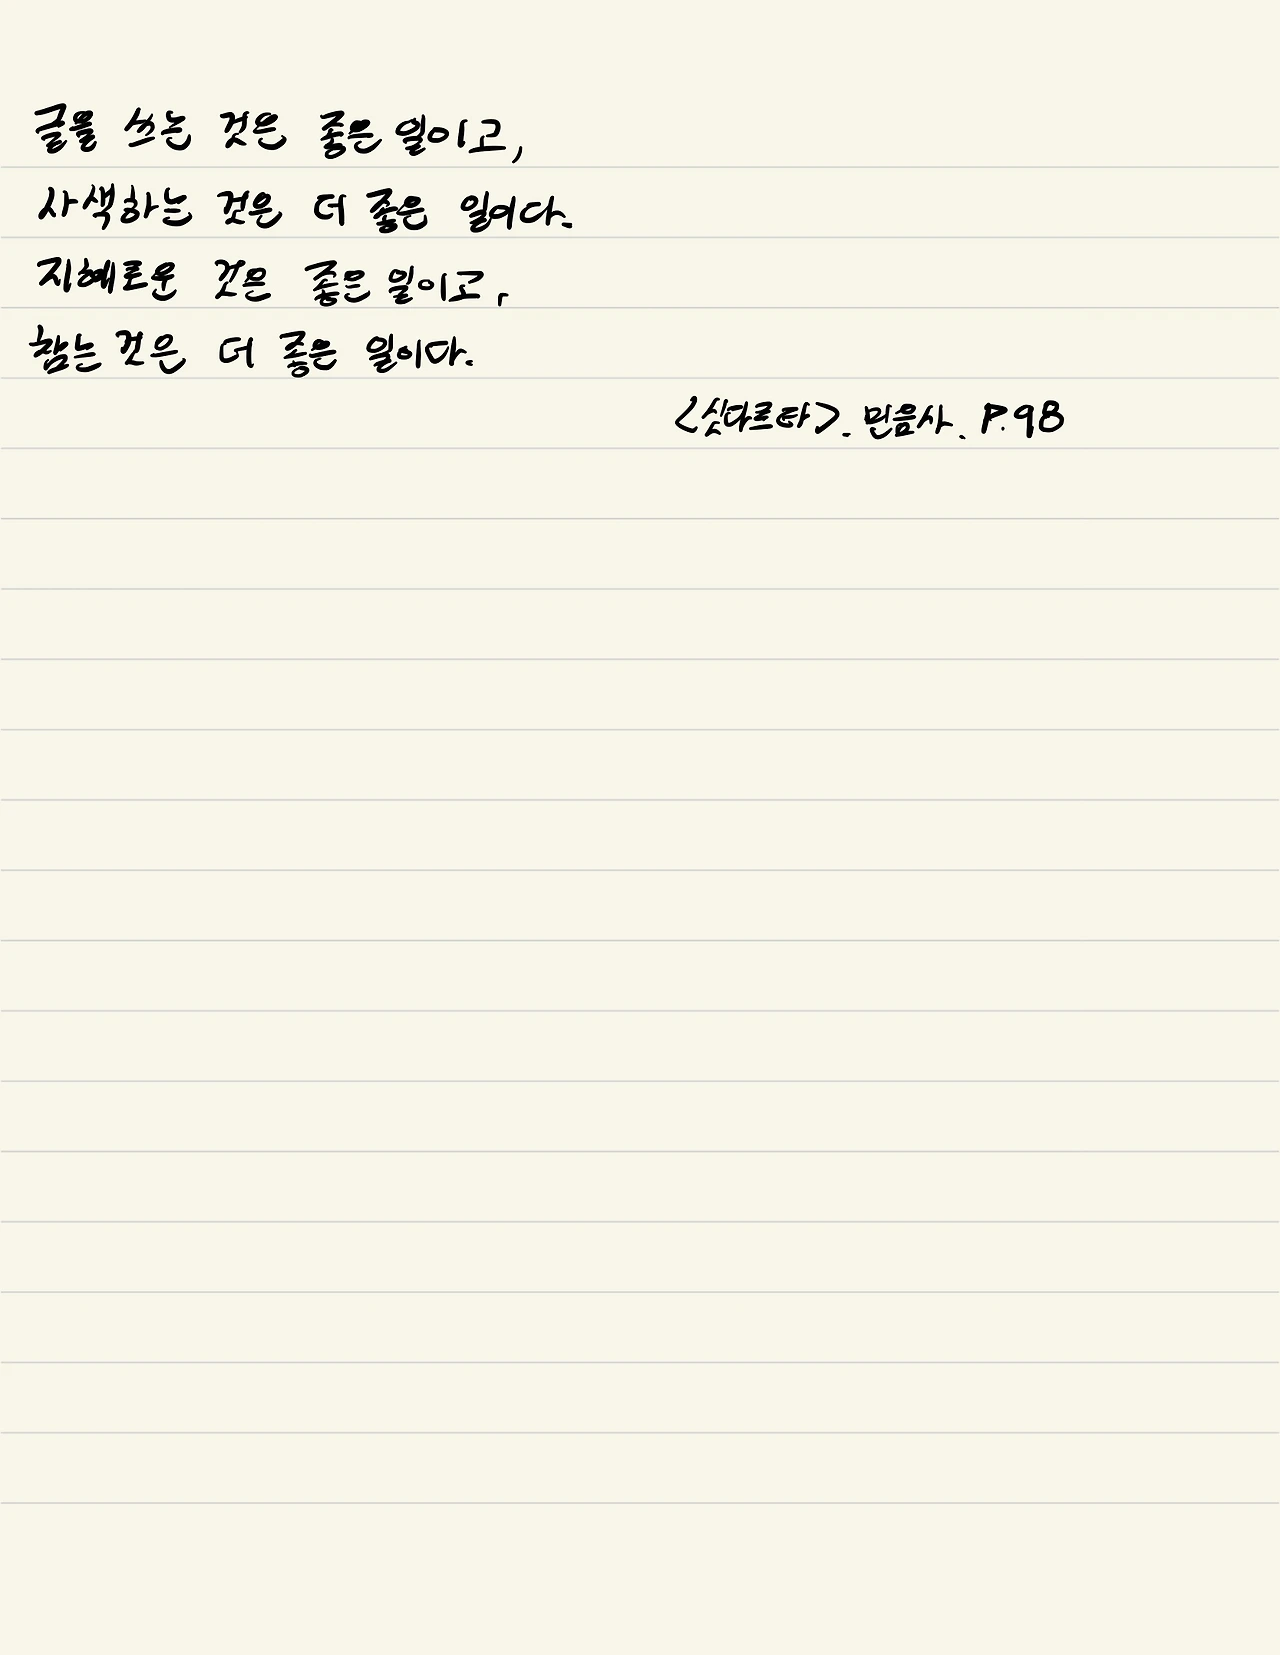 글을 쓰는 것은 좋은 일이고,
사색하는 것은 더 좋은 일이다.
지혜로운 것은 좋은 일이고,
참는 것은 더 좋은 일이다.
<싯다르타>. 민음사. P.98